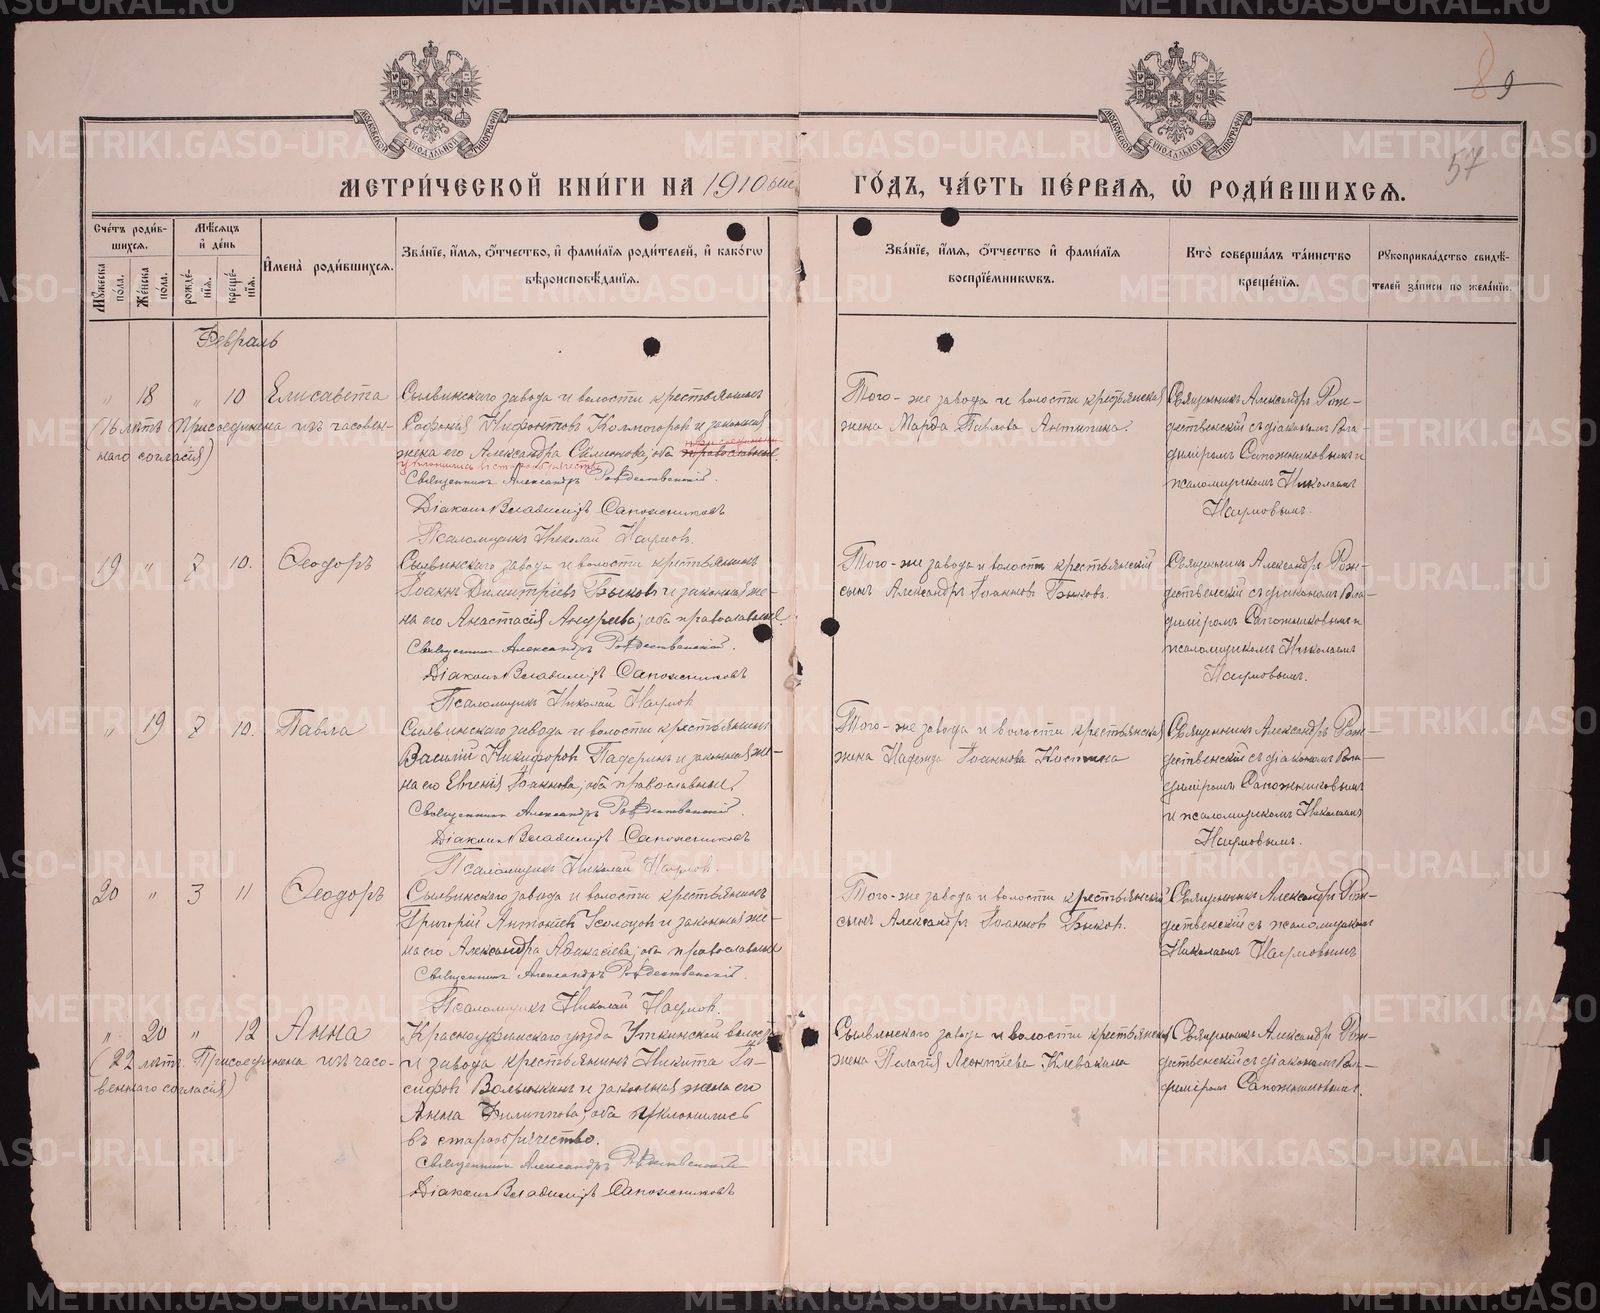 8 9
57
МОСКОВСКОЙ СΥНОДАЛЬНОЙ ТИПОГРАФІИ
МОСКОВСКОЙ СΥНОДАЛЬНОЙ ТИПОГРАФІИ
МЕТРИ́ЧЕСКОЙ КНИ́ГИ НА 1910 ый ГО́ДЪ, ЧА́СТЬ ПЕ́РВАѦ, Ѡ҆ РОДИ́ВШИХСѦ.
Сче́тъ роди́в-
шихсѧ.
Мꙋ́жеска по́ла.
Же́нска по́ла.
Мѣ́сѧцъ
и҆ де́нь
рожде́-
нїѧ.
креще́-
нїѧ.
И҆мена̀ роди́вшихсѧ.
Зва́нїе, и҆́мѧ, ѻ҆́тчество, и҆ фами́лїѧ роди́телей, и҆ како́гѡ
вѣроисповѣ́данїѧ.
Зва́нїе, и҆́мѧ, ѻ҆́тчество и҆ фами́лїѧ
воспрїе́мникѡвъ.
Кто̀ соверша́лъ та́инство
креще́нїѧ.
Рꙋкоприкла́дство свидѣ́-
телей за́писи по жела́нїю.
Февраль
" 18 " 10 Елисавета
(16 лѣтъ Присоединена изъ часовен-
наго согласія)
Сылвинскаго завода и волости крестьянинъ
Софонія Нифонтовъ Колмогоров и законная
жена его Александра Симонова, оба православные.
уклонились въ старообрядчество
Священникъ Александръ Рождественскій.
Діаконъ Владимиръ Сапожниковъ
Псаломщикъ Николай Наумов.
Того-же завода и волости крестьянская
жена Марѳа Павлова Антипина.
Священникъ Александръ Рож-
дественскій съ діакономъ Вла-
димиромъ Сапожниковымъ и
псаломщикомъ Николаемъ
Наумовымъ.
19 " 7 10. Ѳеодоръ
Сылвинскаго завода и волости крестьянинъ
Іоаннъ Димитріевъ Быков и законная же-
на его Анастасія Андреева, оба православные.
Священникъ Александръ Рождественскій.
Діаконъ Владимиръ Сапожниковъ
Псаломщикъ Николай Наумов
Того-же завода и волости крестьянскій
сынъ Александръ Іоанновъ Быковъ.
Священникъ Александръ Рож-
дественскій съ діакономъ Вла-
димиромъ Сапожниковымъ и
псаломщикомъ Николаемъ
Наумовымъ.
" 19 7 10. Павла
Сылвинскаго завода и волости крестьянинъ
Василій Никифоров Падерин и законная же-
на его Евгенія Іоаннова, оба православные.
Священникъ Александръ Рождественскій.
Діаконъ Владимиръ Сапожниковъ
Псаломщикъ Николай Наумов.
Того-же завода и волости крестьянская
жена Надежда Іоаннова Костина
Священникъ Александръ Рож-
дественскій съ діакономъ Вла-
димиромъ Сапожниковымъ
и псаломщикомъ Николаемъ
Наумовымъ.
20 " 3 11 Ѳеодоръ
Сылвинскаго завода и волости крестьянинъ
Григорій Антоніев и законная же-
на его Александра Аѳанасіева, оба православные
Священникъ Александръ Рождественскій.
Псаломщикъ Николай Наумов.
Того-же завода и волости крестьянскій
сынъ Александръ Іоаннов Быков.
Священникъ Александръ Рож-
дественскій съ псаломщикомъ
Николаемъ Наумовымъ
" 20 " 12 Анна
(22 лѣтъ. Присоединена изъ часо-
веннаго согласія)
Красноуфимскаго уѣзда Уткинской волости
и завода крестьянинъ Никита Іо-
сифов Волынкинъ и законная жена его
Анна Филиппова, оба уклонились
въ старообрядчество.
Священникъ Александръ Рождественскій
Діаконъ Владимиръ Сапожниковъ
Сылвинскаго завода и волости крестьянская
жена Пелагія Леонтіева Клевакина
Священникъ Александръ Рож-
дественскій съ діакономъ Вла-
димиромъ Сапожниковымъ.
METRIKI.GASO-URAL.RU